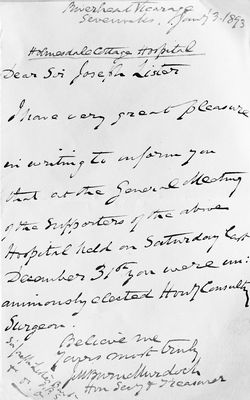 Riverhead Vicarage
Sevenoaks. Jany 3. 1893
Holmesdale Cottage Hospital
Dear Sir Joseph Lister
I have very great pleasure
in writing to inform you
that at the General Meeting
of the Supporters of the above
Hospital held on Saturday last
December 31st you were un:
animously elected Hony Consultg
Surgeon.
Believe me
Yours most truly
J M Burn Murdoch
Hon Secy & Treasurer
Sir Joseph Lister